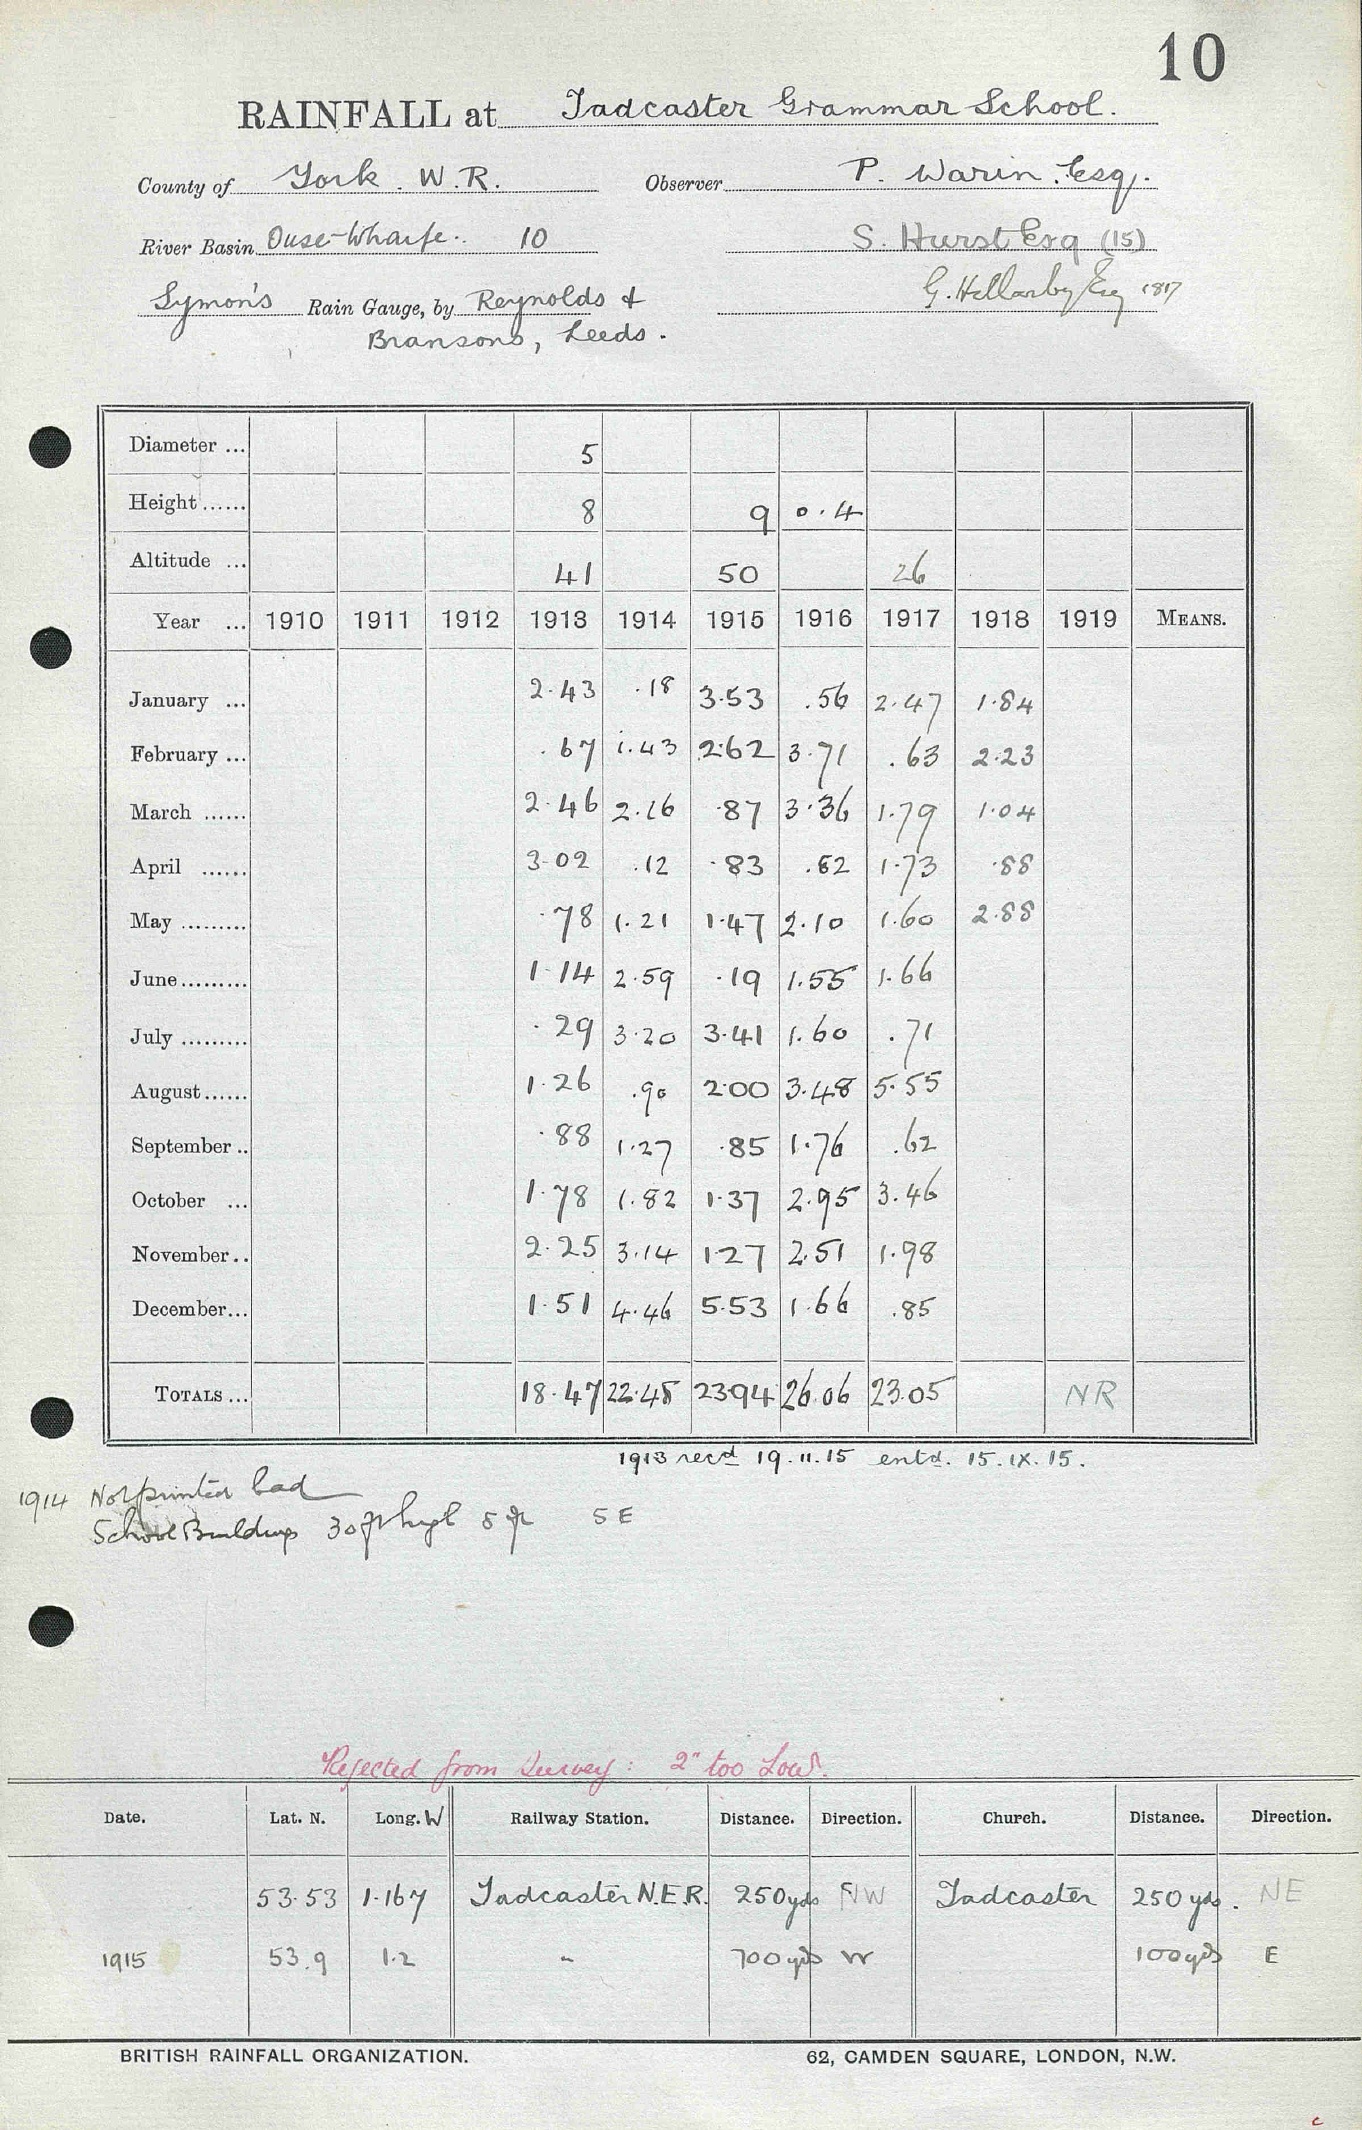 10
RAINFALL at Tadcaster Grammar School.
County of York. W.R. Observer P. Warin. Esq.
River Basin Ouse-Wharfe. 10 S. Hurst Esq (15)
Symon's Rain Gauge, by Reynolds & G. Hellawby Esq 1917
Bransons, Leeds.
Diameter ... 5
Height ...... 8 9 0.4
Altitude ... 41 50 26
Year ... 1910 1911 1912 1913 1914 1915 1916 1917 1918 1919 MEANS.
January ... 2.43 .18 3.53 .56 2.47 1.84
February ... .67 1.43 2.62 3.71 .63 2.23
March ...... 2.46 2.16 .87 3.36 1.79 1.04
April ...... 3.02 .12 .83 .82 1.73 .88
May ......... .78 1.21 1.47 2.10 1.60 2.88
June......... 1.14 2.59 .19 1.55 1.66
July ......... .29 3.20 3.41 1.60 .71
August...... 1.26 .90 2.00 3.48 5.55
September .. .88 1.27 .85 1.76 .62
October ... 1.78 1.82 1.37 2.95 3.46
November.. 2.25 3.14 1.27 2.51 1.98
December... 1.51 4.46 5.53 1.66 .85
TOTALS ... 18.47 22.48 23.94 26.06 23.05 NR
1913 recd 19.11.15 entd. 15.IX.15.
1914 Not printed bad
School Buildings 30 ft high 8 ft SE
Rejected from Survey: 2" too Low.
Date. Lat. N. Long. W Railway Station. Distance. Direction. Church. Distance. Direction.
53.53 1.167 Tadcaster N.E.R. 250yds NW Tadcaster 250 yds. NE
1915 53.9 1.2 " 700yds W 100yds E
BRITISH RAINFALL ORGANIZATION. 62, CAMDEN SQUARE, LONDON, N.W.
c